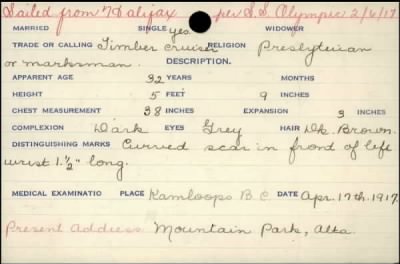 Sailed from Halifax per S.S. Olympic 2/6/17
MARRIED SINGLE yes. WIDOWER
TRADE OR CALLING Timber cruiser RELIGION Presbyterian
or marksman. DESCRIPTION.
APPARENT AGE 32 YEARS MONTHS
HEIGHT 5 FEET 9 INCHES
CHEST MEASUREMENT 38 INCHES EXPANSION 3 INCHES
COMPLEXION Dark EYES Grey HAIR Dk. Brown.
DISTINGUISHING MARKS Curved scar in front of left
wrist 1.½" long.
MEDICAL EXAMINATIO PLACE Kamloops B.C DATE Apr. 17th. 1917.
Present Address Mountain Park, Alta.